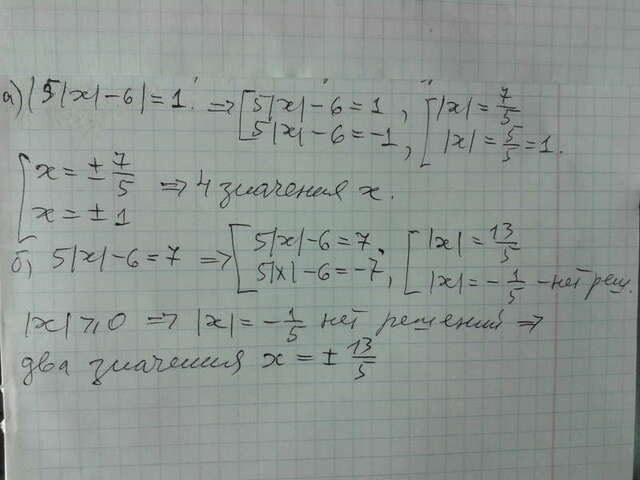 а) |5|x|-6|=1. ⇒ [5|x|-6=1, [|x|=7/5
5|x|-6=-1, |x|=5/5=1.
[x=±7/5 ⇒ 4 значения x.
x=±1
б) 5|x|-6=7 ⇒ [5|x|-6=7, [|x|=13/5
5|x|-6=-7, |x|=-1/5 - нет реш.
|x|⩾0 ⇒ |x|=-1/5 нет решений ⇒
два значения x=±13/5